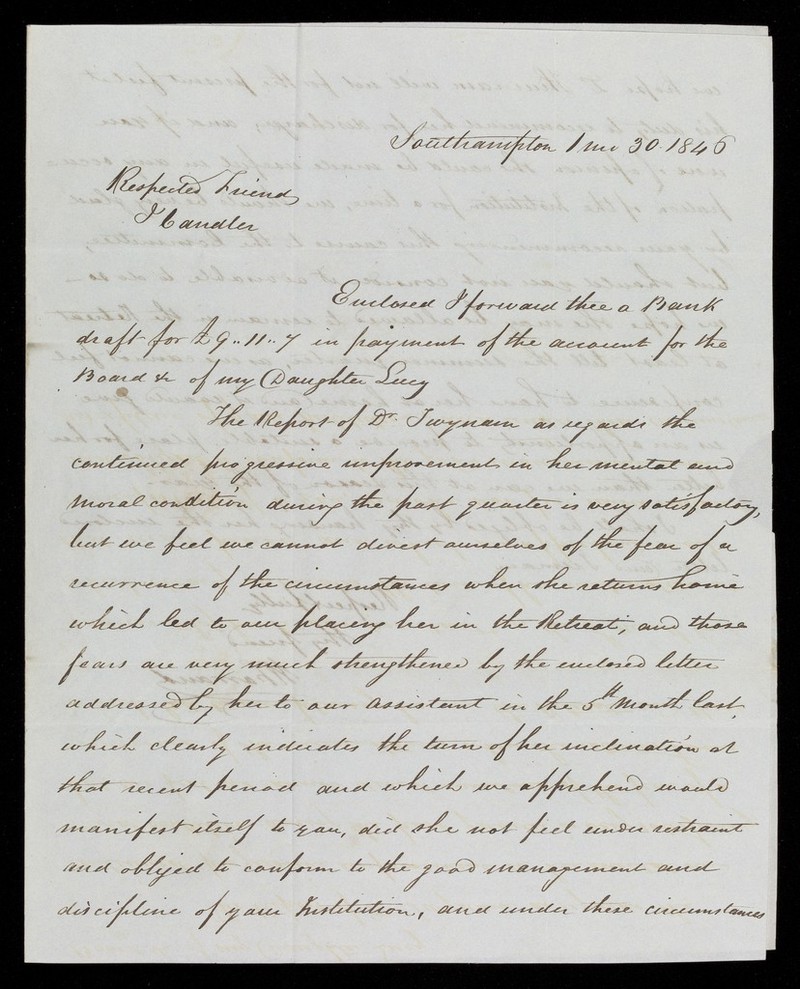 Southampton 1 mo 30. 1846
Respected Friend
J Candler
Enclosed I forward thee a Bank
draft for £9.. 11.. 7 in payment of the account for the
Board & of my Daughter Lucy
The Report of Dr. Twynam as regards the
continued progressive improvement in her mental and
moral condition during the past quarter is very satisfactory,
but we feel we cannot divest ourselves of the fear of a
recurrence of the circumstances when she returns home
which led to our placing her in the Retreat, and those
fears are very much strengthened by the enclosed letter
addressed by her to our assistant in the 5th Month last,
which clearly indicates the turn of her inclination at
that recent period and which we apprehend would
manifest itself to you, did she not feel under restraint
and obliged to conform to the good management and
discipline of your Institution, and under these circumstances